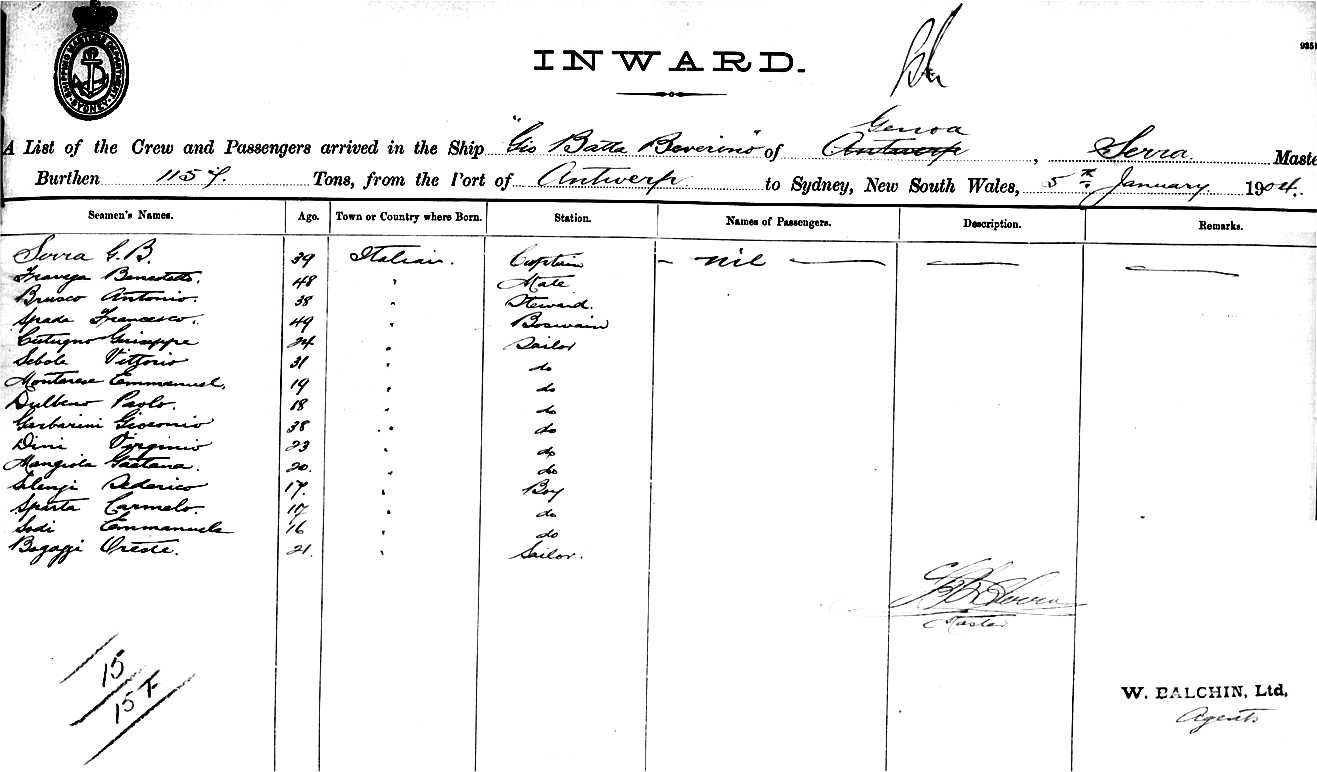 SHIPPING MASTER'S DEPARTMENT SYDNEY
INWARD.
Genoa
A List of the Crew and Passengers arrived in the Ship "Gio Batta Beverino" of Antwerp, Serra Maste
Burthen 1157. Tons, from the Port of Antwerp to Sydney, New South Wales, 5th January 1904.
Seamen's Names. Age. Town or Country where Born. Station. Names of Passengers. Description. Remarks.
Serra G. B. 39 Italian. Captain – nil — — —
Fravega Benedetto. 48 " Mate
Brusco Antonio. 38 " Steward.
Spada Francesco. 49 " Boswain
Cutugno Giuseppe 24 " Sailor
Sebole Vittorio 31 " do
Monterese Emmanuel. 19 " do
Dulbeno Paolo. 18 " do
Garbarini 38 " do
Dini Virginio 23 " do
Mangiola Gaetana. 20. " do
Federico 17. " Boy
Sparta Carmelo. 17 " do
Sodi Emmanuele 16 " do
Bogazzi Oreste. 21. " Sailor.
Master
15
15 F
W. BALCHIN, Ltd,
Agents